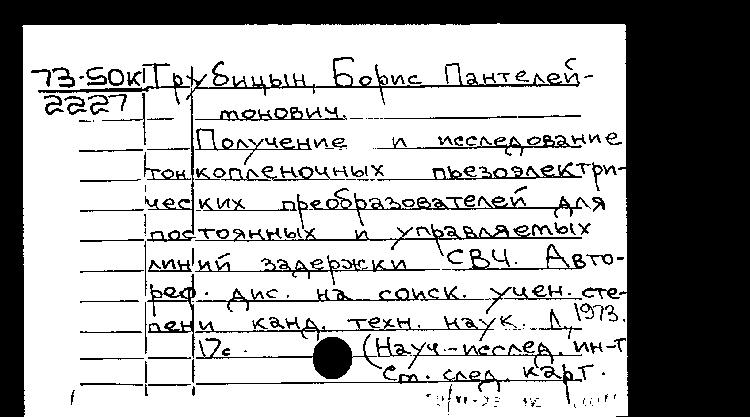 73-50к Трубицын, Борис Пантелей-
2227 монович.
Получение и исследование
тонкопленочных пьезоэлектри-
ческих преобразователей для
постоянных и управляемых
линий задержки СВЧ. Авто-
реф. дис. на соиск. учен. сте-
пени канд. техн. наук. Л., 1973.
17с. (Науч.-исслед. ин-т
См. след. карт.